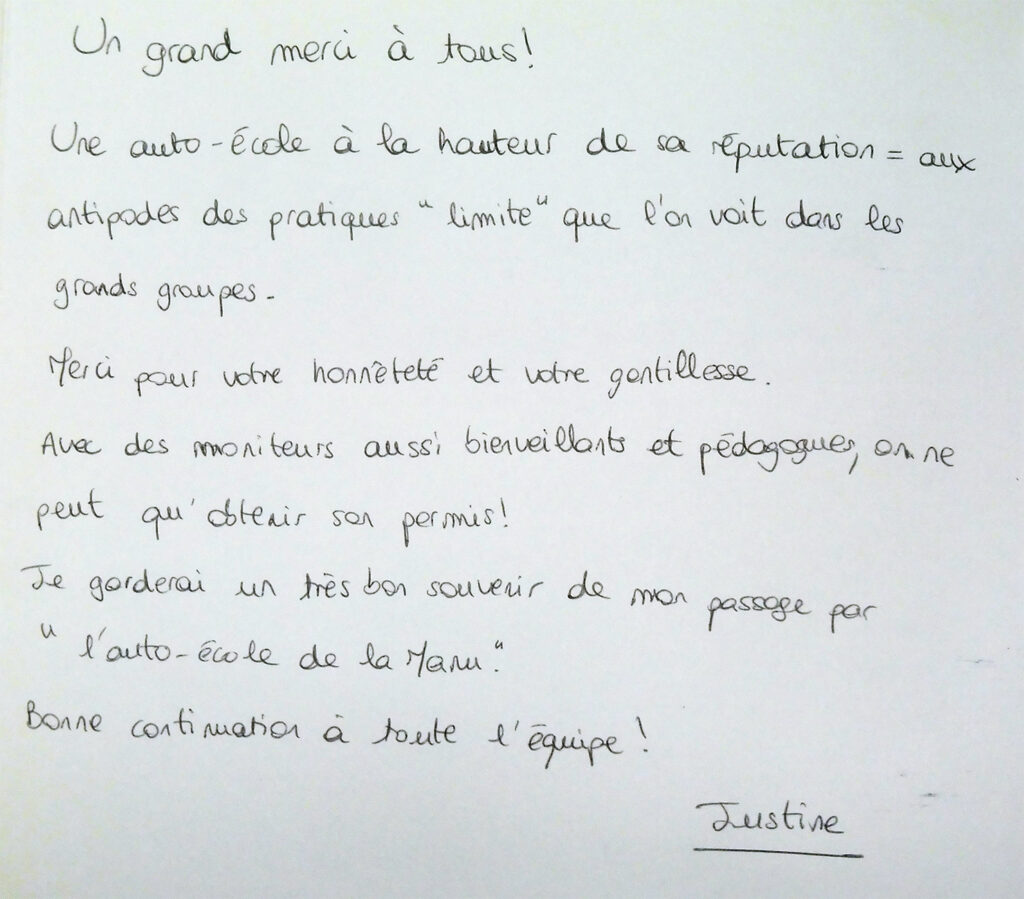 Un grand merci à tous!
Une auto-école à la hauteur de sa réputation = aux
antipodes des pratiques "limite" que l'on voit dans les
grands groupes.
Merci pour votre honnêteté et votre gentillesse.
Avec des moniteurs aussi bienveillants et pédagogues, on ne
peut qu'obtenir son permis!
Je garderai un très bon souvenir de mon passage par
"l'auto-école de la Manu".
Bonne continuation à toute l'équipe!
Justine